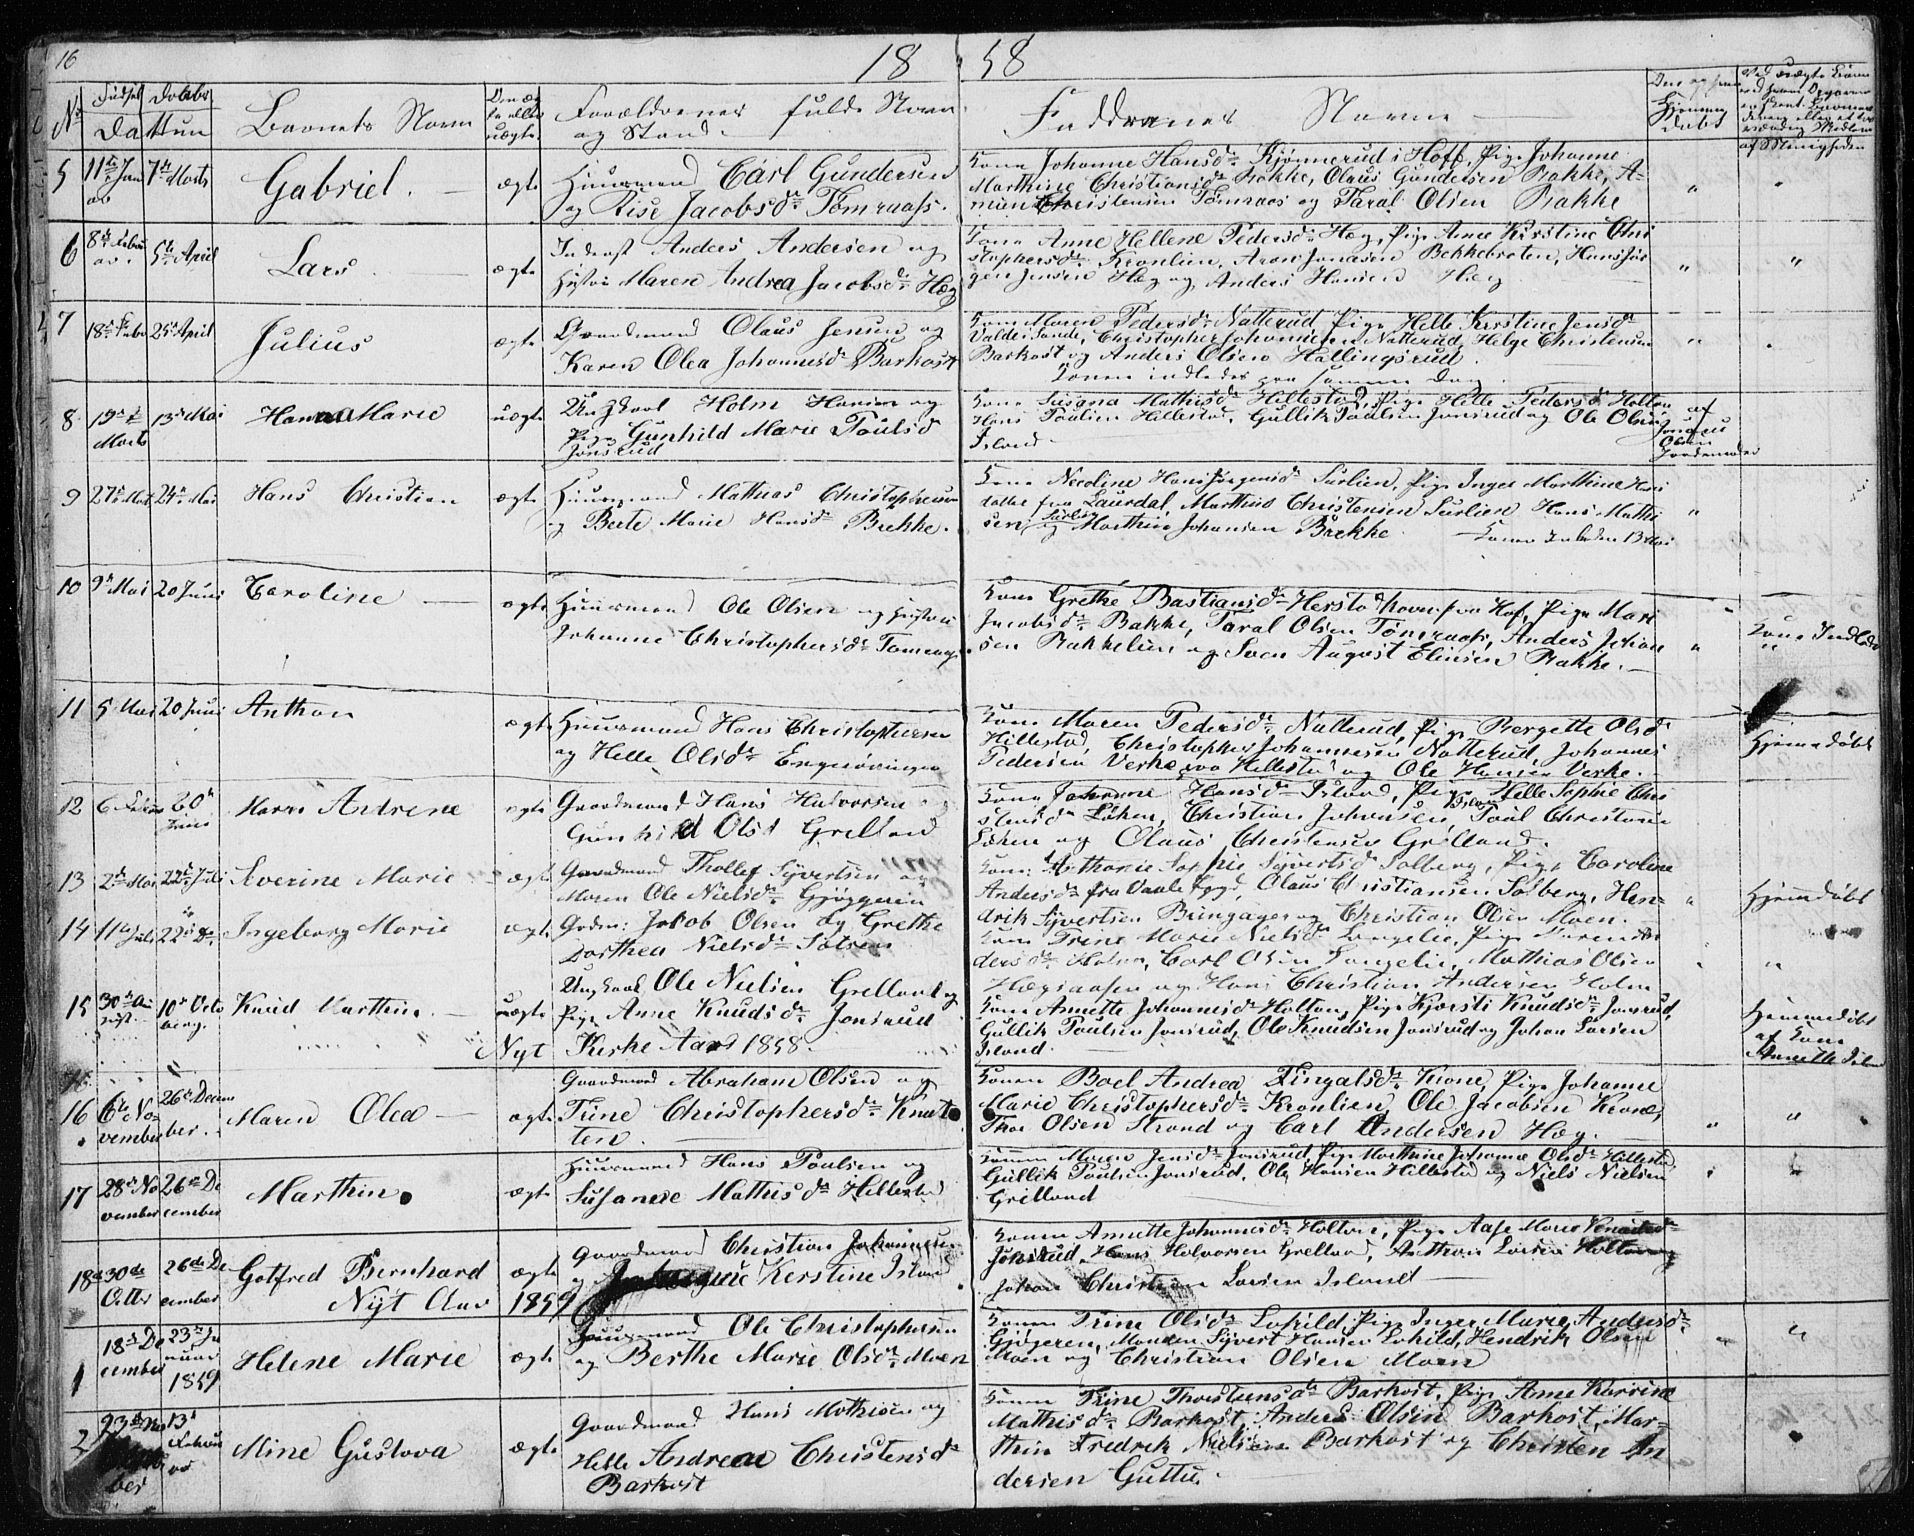 16
18 58
No
Fødsel Daabs
Dattun
Barnets Navn
Den æg
te eller
uægte
Forældrenes fulde Navn
og Stand
Faddernes Navne
Hjemme
Døbt
af Menigheden
5 11te Janu 7de Marts Gabriel. ægte Huusmand Carl Gundersen
og Lise Jacobsdr Tømraas.
Kone Johanne Hansdr Kjønnerud i Hoff, Pige Johanne
Marthine Christiansdr Bakke, Olaus Gundersen Bakke, A-
mun Christensen Tømraas og Taral Olsen Bakke
6 8de Febru 5te April Lars ægte Inderst Anders Andersen og
Hustru Maren Andrea Jacobsdr Hæg
Kone Anne Hellene Pedersdr Hæg, Pige Anne Kirstine Chri
stophersdr Kronlien, Aron Jonasen Bekkebroten, Hans Jør
gen Jensen Hæg og Anders Hansen Hæg
7 18de Febr 25de April Julius ægte Gaardmand Olaus Jensen og
Karen Olea Johannesdr Barkost
Kone Maren Pedersdr Natterud Pige Helle Kirstine Jensdr
Valde Sande, Christopher Johannesen Natterud, Helge Christensen
Barkost og Anders Olsen Hallingsrud.
Konen indledes paa samme Dag.
8 19de Marts 13de Mai Hanna Marie uægte Ungkarl Holm Hansen og
Pige Gunhild Marie Poulsd
Jonsrud
Kone Susana Mathisdr Hillestad, Pige Helle Pedersdr Holtan,
Hans Poulsen Hillestad, Gullik Poulsen Jonsrud og Ole Olsen
Island.
af
Olsen
Jordemoder
9 27de Marts 24de Mai Hans Christian ægte Huusmand Mathias Christophersen
og Berte Marie Hansdr Brekke.
Kone Nicoline Hans Jørgensdr Surlien, Pige Inger Marthine Hans
datter fra Laurdal, Marthus Christensen Surlien Hans Mathi
sen Surlien og Marthin Johansen Brekke. Konen Indleden 13 Mai
10 9de Mai 20 Juni Caroline ægte Huusmand Ole Olsen og Hustru
Johanne Christophersdr Tomraas
Kone Grethe Bastiansdr Herstad Kone fra Hof, Pige Mari
Jacobsdr Bakke, Taral Olsen Tømraas, Anders Johan
sen Bakkelien og Sven August Elinsen Bakke.
Kone Indledet
11 5 Mai 20 Juni Anthon ægte Huusmand Hans Christophersen
og Helle Olsdr Engenøvringen
Kone Maren Pedersdr Natterud, Pige Bergette Olsdr
Hillestad, Christopher Johannesen Natterud, Johannes
Pedersen Verke paa Hillestad og Ole Hansen Verke.
Hjemmedøbt
12 6 Februar 20de Juni Maren Andrene ægte Gaardmand Hans Halvorsen
Gunhild Olsd Grelland
Kone Johanne Hansdr Island, Pige Helle Sophie Chri
stensdr Løken, Christian Johansen Island, Poul Christensen
Løken og Olaus Christensen Grelland.
13 2de Mai 22de Juli Severine Marie ægte Gaardmand Tholles Syvertsen og
Maren Ole Nielsdr Gjøggeren
Kone: Anthonie Sophie Syvertsdr Solberg, Pige Caroline
Andersdr fra Vaale Sogn, Olaus Christiansen Solberg, Hen-
drik Syvertsen Bringager og Christian Olsen Moen.
Hjemmedøbt
14 11te Juli 22de Do Ingeborg Marie ægte Gaardm: Jakob Olsen og Grethe
Dorthea Nielsdr Solsen
Kone Trine Marie Nielsdr Langelie, Pige Karen An
dersdr Holm, Carl Olsen Langelie, Mathias Olsen
Hægsaasen og Hans Christian Andersen Holm
15 30te August 10de October. Knud Marthin. uægte Ungkarl Ole Nielsen Grelland og
Pige Anne Knudsdr Jonsrud
Kone Annette Johannesdr Holtan, Pige Kjersti Knudsdr Jonsrud,
Gullik Poulsen Jonsrud, Ole Knudsen Jonsrud og Johan Larsen
Island.
Hjemmedøbt
af Kone
Annette Island
Nyt Kirke Aar 1858.
16 6te November 26de December. Maren Olea ægte Gaardmand Abraham Olsen og
Trine Christophersdr Knat
ten.
Konen Boel Andrea Fingalsdr Krone, Pige Johanne
Marie Christophersdr Kronlien, Ole Jacobsen Krone,
Thor Olsen Strand og Carl Andersen Hæg.
17 28de November 26de December Marthin ægte Huusmand Hans Poulsen og
Susanne Mathisdr Hillestad
Konen Maren Jensdr Jonsrud, Pige Marthine Johanne Olsdr Hillestad,
Gullik Poulsen Jonsrud, Ole Hansen Hillestad og Niels Nielsen
Grelland
18 30de Octbr 26de December Gotfred Bernhard ægte Gaardmand Christian Johannesen
og Kirstine Island
Konen Annette Johannesdr Holtan, Pige Aase Marie Knudsdr
Jonsrud, Hans Halvorsen Grelland, Anthon Larsen Holtan og
Johan Christian Larsen Island
Nyt Aar 1859
1 18de December 23de Januar 1859 Helene Marie ægte Huusmand Ole Christophersen
og Berthe Marie Olsdr Moen
Konen Trine Olsdr Lohild, Pige Inger Marie Andersdr
Gjøgeren, Manden Syvert Hansen Lohild, Hendrik Olsen
Moen og Christian Olsen Moen
2 23de 13de Februar Mine Gustava ægte Gaardmand Hans Mathisen og
Helle Andrea Christensdr
Barkost
Konen Trine Thorstensdr Barkost, Pige Anne Karrine
Mathisdr Barkost, Anders Olsen Barkost, Mar-
thin Fredrik Nielsen Barkost og Christen An
dersen Guttu.